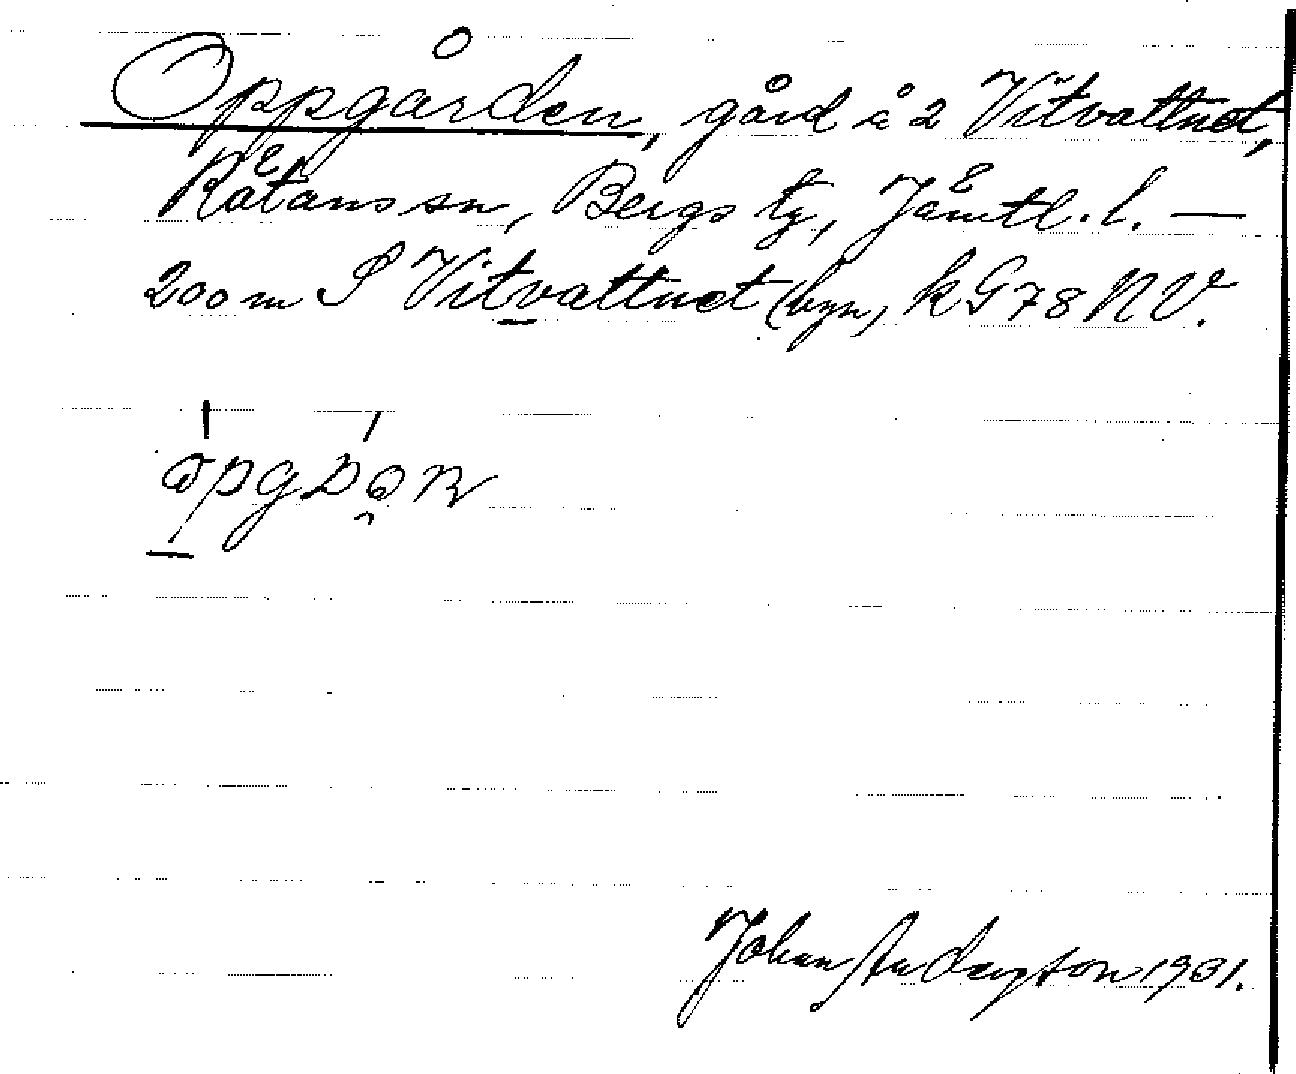 Oppgården, gård å 2 Vitvattnet,
Rätans sn, Bergs tg, Jämtl. l. —
200 m S Vitvattnet (byn) k G 78 NV.
Johan Andersson 1931.